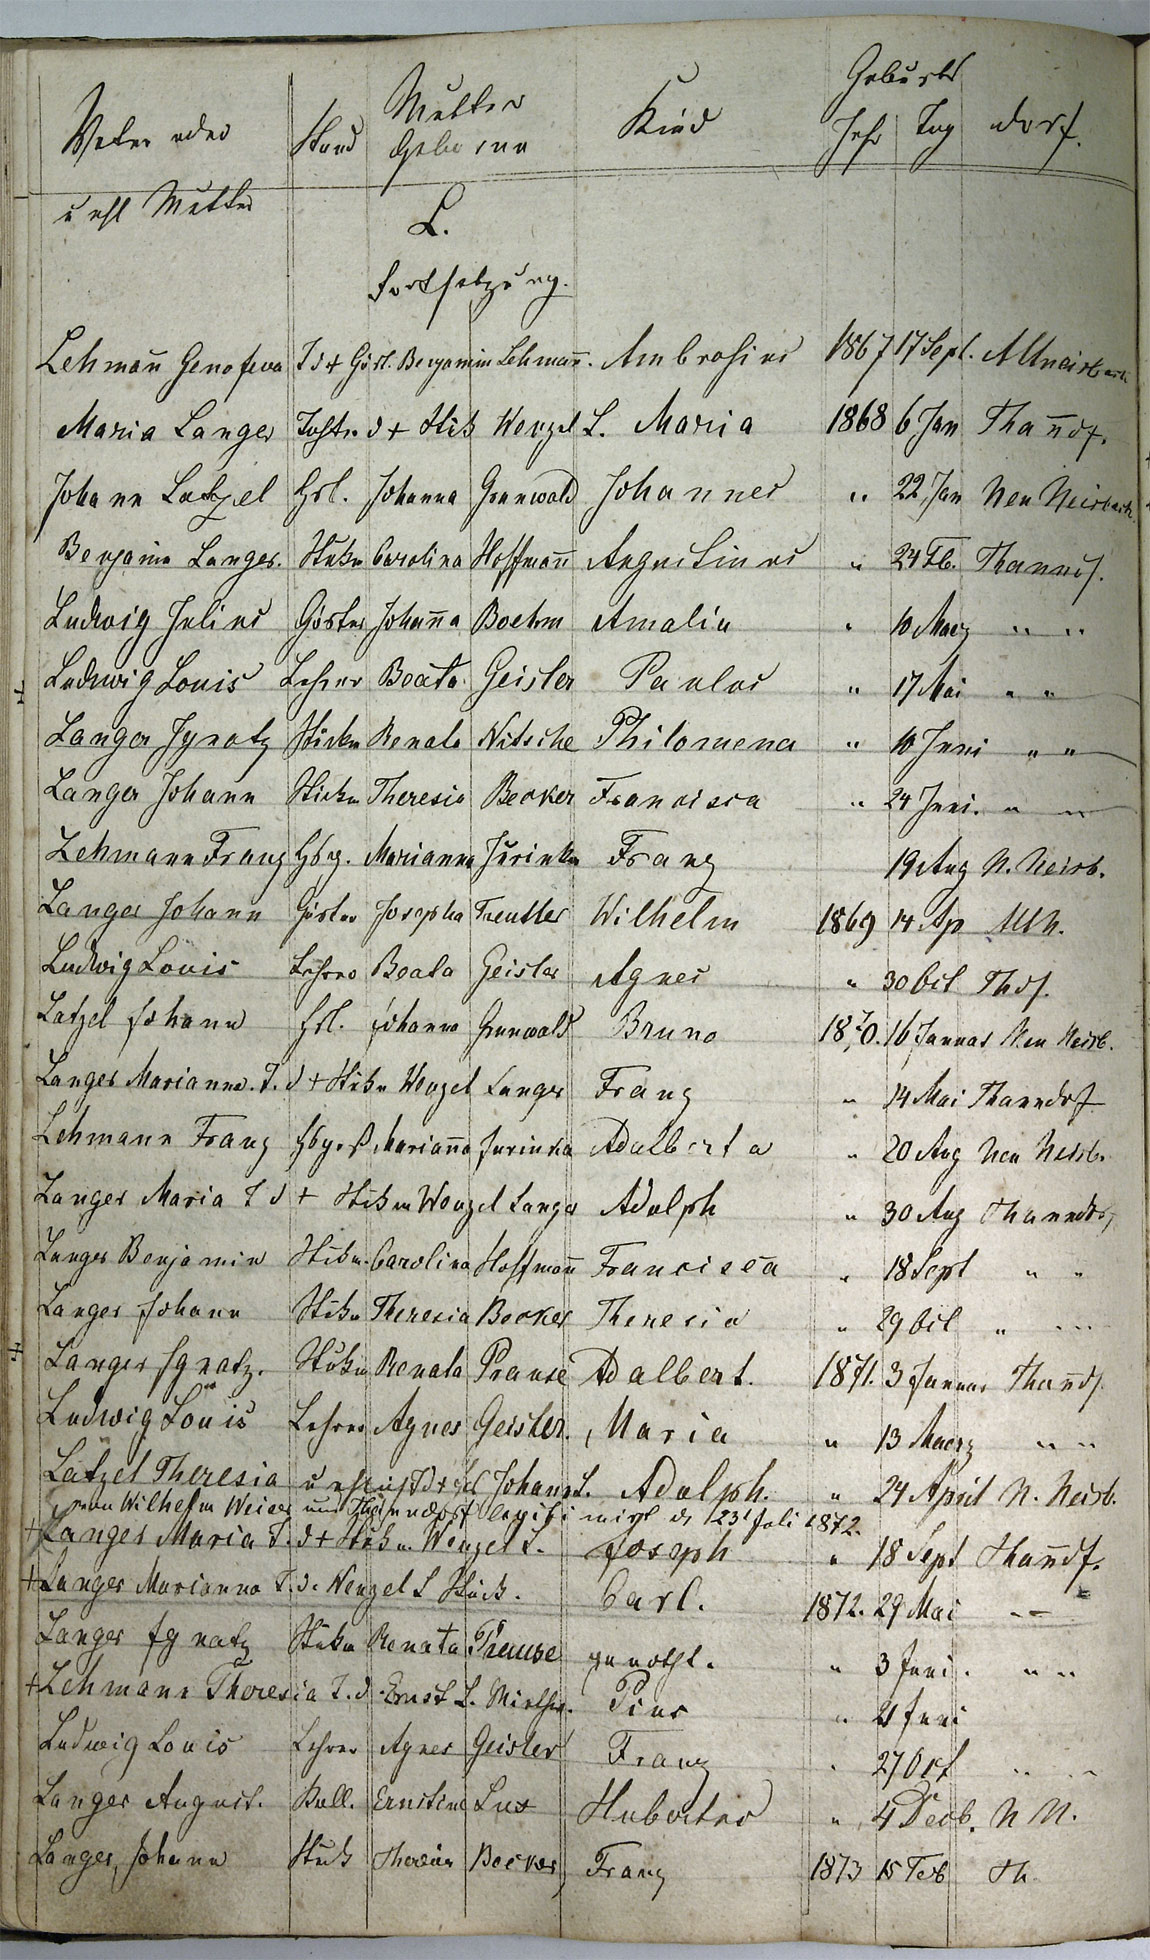 Vater oder Stand Mutter Geborene Kind Geburts Jahr Tag Dorf.
u ehl Mutter
L.
Fortsetzung.
Lehmañ Genofeva T d + Gärt. Benjamin Lehmañ. Ambrosius 1867 17 Sept. Altneisbach
Maria Langer Tochtr. d + Stük Wenzel L. Maria 1868 6 Jan Thañdf.
Johann Latzel Hsl. Johanna Grunwald Johannes " 22 Jan Neu Neisbach.
Benjamin Langer. Stükm Carolina Hoffmañ Augustinus " 24 Fb. Thanndf.
Ludwig Julius Gärtner Johaña Boehm Amalia " 10 Maerz " "
Ludwig Louis Lehrer Beata Geisler Paulus " 17 Mai " "
Langer Ignatz Stükm Renata Nitsche Philomena " 10 Juni " "
Langer Johann Stükm Theresia Becker Francisca " 24 Juni. " "
Lehmann Franz Hbg. Marianna Jurinka Franz 19 Aug N. Neisb.
Langer Johann Gärtner Josepha Treutler Wilhelm 1869 14 Ap Altn.
Ludwig Louis Lehrer Beata Geisler Agnes " 30 Oct Thdf.
Latzel Johann Hsl. Johanna Grunwald Bruno 1870. 16 Januar Neu Neisb.
Langer Marianna. T. d + Stükm Wenzel Langer Franz " 14 Mai Thanndorf
Lehmann Franz Marianña Jurinka Adalberta " 20 Aug Neu Neisb.
Langer Maria T d + Stükm Wenzel Langer Adolph " 30 Aug Thanndorf
Langer Benjamin Stükm. Carolina Hoffmañ Francisca " 18 Sept " "
Langer Johann Stükm Theresia Becker Theresia " 29 Oct " "
Langer Ignatz. Stükm Renata Prause Adalbert. 1871. 3 Januar Thañdf.
Ludwig Louis Lehrer Agnes Geisler. Maria " 13 Maerz " "
Latzel Theresia Johann L. Adolph. " 24 April N. Neisb.
von Wilhelm Weiser aus Thanndorf legitimirt d 23t Juli 1872.
+ Langer Maria T. d + Stükm. Wenzel L. Joseph " 18 Sept Thañdf.
+ Langer Marianna T. d. Wenzel L Stük. Carl. 1872. 29 Mai " "
Langer Ignatz Stükm Renata Prause genotht. " 3 Juni. " "
+ Lehmann Theresia T. d. Ernst L. Miether. Pius " 21 Juni
Ludwig Louis Lehrer Agnes Geisler Franz " 27 Oct " "
Langer August. Ernstine Lux Hubertus " 4 Decb. N N.
Langer, Johann Stük Theresia Becker Franz 1873 15 Feb Th.